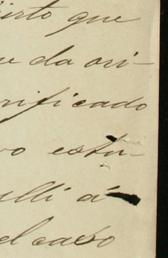 irto que
e da ori-
rificado
o estu-
alli á
el caso